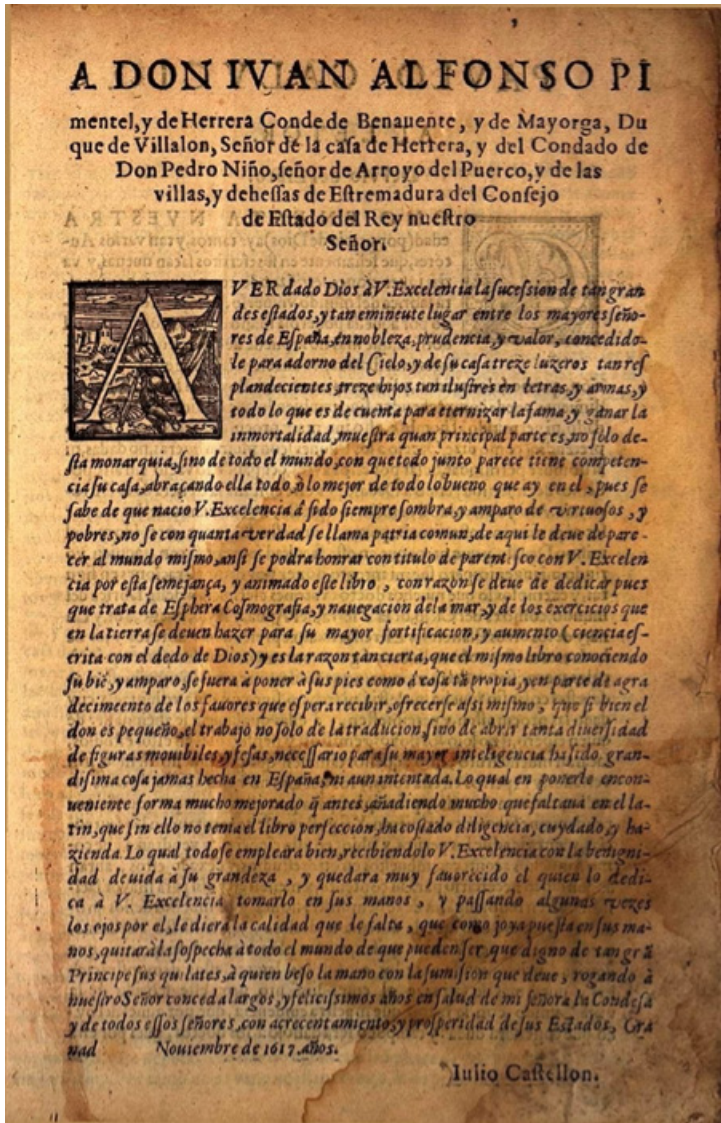 A DON IVAN ALFONSO PI
mentel, y de Herrera Conde de Benauente, y de Mayorga, Du
que de Villalon, Señor de la casa de Herrera, y del Condado de
Don Pedro Niño, señor de Arroyo del Puerco, y de las
villas, y dehessas de Estremadura del Consejo
de Estado del Rey nuestro
Señor.
AVER dado Dios à V. Excelencia la sucession de tan gran
des estados, y tan emineute lugar entre los mayores seño-
res de España, en nobleza, prudencia, y valor, concedido-
le para adorno del Cielo, y de su casa treze luzeros tan res
plandecientes, treze hijos tan ilustres en letras, y armas, y
todo lo que es de cuenta para eternizar la fama, y ganar la
inmortalidad, muestra quan principal parte es, no solo de-
sta monarquia, sino de todo el mundo, con que todo junto parece tiene competen-
cia su casa, abraçando ella todo, ò lo mejor de todo lo bueno que ay en el, pues se
sabe de que nacio V. Excelencia á sido siempre sombra, y amparo de virtuosos, y
pobres, no se con quanta verdad se llama patria comun, de aqui le deue de pare-
cer al mundo mismo, ansi se podra honrar con titulo de parent sco con V. Excelen
cia por esta semejança, y animado este libro, con razon se deue de dedicar pues
que trata de Esphera Cosmografia, y nauegacion de la mar, y de los exercicios que
en la tierra se deuen hazer para su mayor fortificacion, y aumento (ciencia es-
crita con el dedo de Dios) y es la razon tan cierta, que el mismo libro conociendo
su biẽ, y amparo, se fuera à poner à sus pies como á cosa tã propia, y en parte de agra
decimeento de los fauores que espera recibir, ofrecerse assi mismo, que si bien el
don es pequeño, el trabajo no solo de la traducion, sino de abrir tanta diuersidad
de figuras mouibiles, y fesas, necessario para su mayor inteligencia ha sido gran-
disima cosa jamas hecha en España, ni aun intentada. Lo qual en ponerle en con-
ueniente forma mucho mejorado q̃ antes, añadiendo mucho que faltaua en el la-
tin, que sin ello no tenia el libro perfeccion, ha costado diligencia, cuydado, y ha-
zienda. Lo qual todo se empleara bien, recibiendolo V. Excelencia con la benigni-
dad deuida à su grandeza, y quedara muy fauorecido el quien lo dedi-
ca à V. Excelencia tomarlo en sus manos, y passando algunas vezes
los ojos por el, le diera la calidad que le falta, que como joya puesta en sus ma-
nos, quitarà la sospecha à todo el mundo de que pueden ser, que digno de tan grã
Principe sus quilates, à quien beso la mano con la sumision que deue, rogando à
nuestro Señor conceda largos, y felicissimos años en salud de mi señora la Condesa
y de todos essos señores, con acrecentamiento, y prosperidad de sus Estados, Gra
nad Nouiembre de 1617. años.
Iulio Castellon.